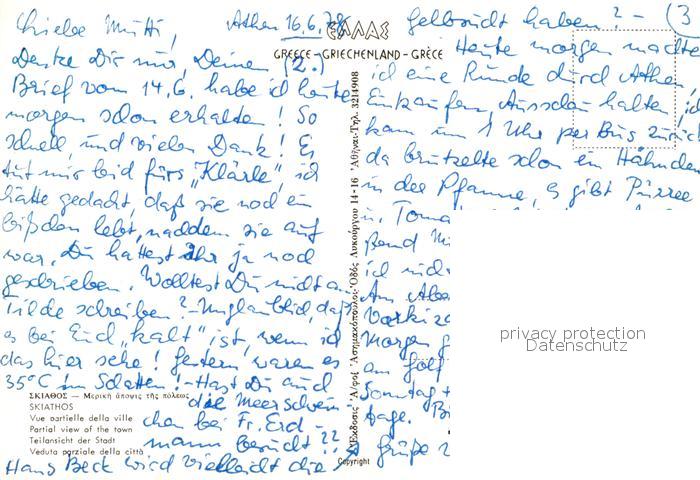 Liebe Mutti, Athen 16.6.78
Denke Dir nur, Deinen (2.)
Brief vom 14.6. habe ich heute
morgen schon erhalten! So
schnell, und vielen Dank! Es
tut mir leid fürs "Klärle", ich
hätte gedacht, daß sie noch ein
bißchen lebt, nachdem sie auf
war. Du hattest ihr ja noch
geschrieben. Wolltest Du nicht an
Tilde schreiben? - Unglaublich, daß
es bei Euch "kalt" ist, wenn ich
das hier sehe! Gestern waren es
35°C im Schatten! - Hast Du auch
die Meerschwein-
chen bei Fr. Erd-
mann besucht??
Hans Beck wird vielleicht die
ΕΛΛΑΣ
GREECE - GRIECHENLAND - GRÈCE
ΣΚΙΑΘΟΣ — Μερική άποψις τής πόλεως
SKIATHOS
Vue partielle della ville
Partial view of the town
Teilansicht der Stadt
Veduta parziale della città
Έκδοσις Α/φοί Άσημακόπουλοι Όδός Λυκούργου 14-16 Άθήναι-Τηλ. 3214908
Copyright
(3
gebraucht haben? -
Heute morgen machte
ich eine Runde durch Athen,
Einkaufen, Ausschau halten, ich
kam um 1 Uhr per Bus zurück
da brutzelte schon ein Hähnchen
in der Pfanne, es gibt Püree
u. Toma
ßend Mi
ich nich
Am Abe
Varkiza
Morgen g
am Golf
Sonntag
tage. Bi
Grüße
privacy protection
Datenschutz